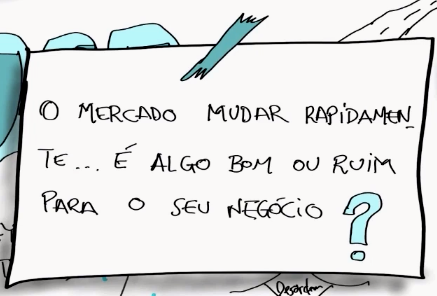 O MERCADO MUDAR RAPIDAMEN
TE... É ALGO BOM OU RUIM
PARA O SEU NEGÓCIO ?
Desordem